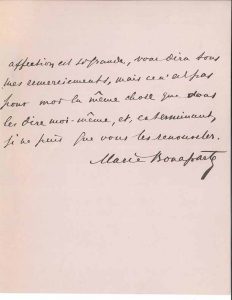 affection est si grande, vous dira tous
mes remerciements, mais ce n'est pas
pour moi la même chose que de vous
les dire moi-même, et, en terminant,
je ne puis que vous les renouveler.
Marie Bonaparte